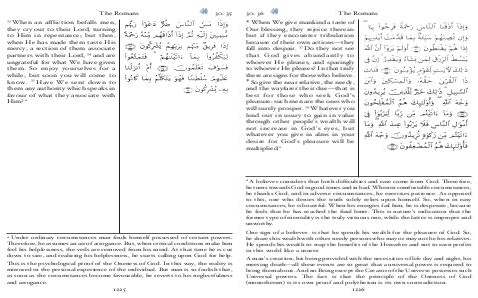 The Romans
30: 35
33 When an affliction befalls men,
they cry out to their Lord, turning
to Him in repentance; but then,
when He has made them taste His
mercy, a section of them associate
partners with their Lord, 34 and are
ungrateful for what We have given
them. So enjoy yourselves for a
while, but soon you will come to
know. 35 Have We sent down to
them any authority which speaks in
favour of what they associate with
Him? a
وَإِذَا مَسَّ ٱلنَّاسَ ضُرٌّ دَعَوْا۟ رَبَّهُم
مُّنِيبِينَ إِلَيْهِ ثُمَّ إِذَآ أَذَاقَهُم مِّنْهُ رَحْمَةً
إِذَا فَرِيقٌ مِّنْهُم بِرَبِّهِمْ يُشْرِكُونَ
لِيَكْفُرُوا۟ بِمَآ ءَاتَيْنَٰهُمْ فَتَمَتَّعُوا۟
فَسَوْفَ تَعْلَمُونَ أَمْ أَنزَلْنَا
عَلَيْهِمْ سُلْطَٰنًا فَهُوَ يَتَكَلَّمُ بِمَا كَانُوا۟
بِهِۦ يُشْرِكُونَ
a Under ordinary circumstances man finds himself possessed of certain powers.
Therefore, he assumes an air of arrogance. But, when critical conditions make him
feel his helplessness, the veils are removed from his mind. At that time he is cut
down to size, and realising his helplessness, he starts calling upon God for help.
This is the psychological proof of the Oneness of God. In this way, the reality is
mirrored in the personal experience of the individual. But man is so foolish that,
as soon as the circumstances become favourable, he reverts to his neglectfulness
and arrogance.
1225
30: 36
The Romans
36 When We give mankind a taste of
Our blessing, they rejoice therein:
but if they encounter tribulation
because of their own actions—they
fall into despair. 37 Do they not see
that God gives abundantly to
whoever He pleases, and sparingly
to whoever He pleases? In that truly
there are signs for those who believe.
38 So give the near relative, the needy,
and the wayfarer their due—that is
best for those who seek God's
pleasure: such men are the ones who
will surely prosper. 39 Whatever you
lend out in usury to gain in value
through other people's wealth will
not increase in God's eyes, but
whatever you give in alms in your
desire for God's pleasure will be
multiplied a
وَإِذَآ أَذَقْنَا ٱلنَّاسَ رَحْمَةً فَرِحُوا۟ بِهَا
وَإِن تُصِبْهُمْ سَيِّئَةٌۢ بِمَا قَدَّمَتْ أَيْدِيهِمْ
إِذَا هُمْ يَقْنَطُونَ أَوَلَمْ يَرَوْا۟ أَنَّ ٱللَّهَ
يَبْسُطُ ٱلرِّزْقَ لِمَن يَشَآءُ وَيَقْدِرُ إِنَّ فِى
ذَٰلِكَ لَءَايَٰتٍ لِّقَوْمٍ يُؤْمِنُونَ فَـَٔاتِ
ذَا ٱلْقُرْبَىٰ حَقَّهُۥ وَٱلْمِسْكِينَ وَٱبْنَ
ٱلسَّبِيلِ ذَٰلِكَ خَيْرٌ لِّلَّذِينَ يُرِيدُونَ
وَجْهَ ٱللَّهِ وَأُو۟لَٰٓئِكَ هُمُ ٱلْمُفْلِحُونَ
وَمَآ ءَاتَيْتُم مِّن رِّبًا لِّيَرْبُوَا۟ فِىٓ
أَمْوَٰلِ ٱلنَّاسِ فَلَا يَرْبُوا۟ عِندَ ٱللَّهِ وَمَآ
ءَاتَيْتُم مِّن زَكَوٰةٍ تُرِيدُونَ وَجْهَ ٱللَّهِ
فَأُو۟لَٰٓئِكَ هُمُ ٱلْمُضْعِفُونَ
a A believer considers that both difficulties and ease come from God. Therefore,
he turns towards God in good times and in bad. When in comfortable circumstances,
he thanks God, and in adverse circumstances, he exercises patience. As opposed
to this, one who denies the truth solely relies upon himself. So, when in easy
circumstances, he is boastful. When his energies fail him, he is desperate, because
he feels that he has reached the final limit. This is nature's indication that the
former type of mentality is the truly virtuous one, while the latter is improper and
unworthy.
One sign of a believer is that he spends his wealth for the pleasure of God. So,
he shares his wealth with other needy persons who may or may not be his relatives.
He spends his wealth to reap the benefits of the Hereafter and not to earn profits
in this world like a usurer.
A man's creation, his being provided with the necessities of life day and night, his
meeting death—all these events are so great that a universal power is required to
bring them about. And no Being except the Creator of the Universe possesses such
Universal powers. The fact is that the principle of the Oneness of God
(monotheism) is its own proof and polytheism is its own contradiction.
1226